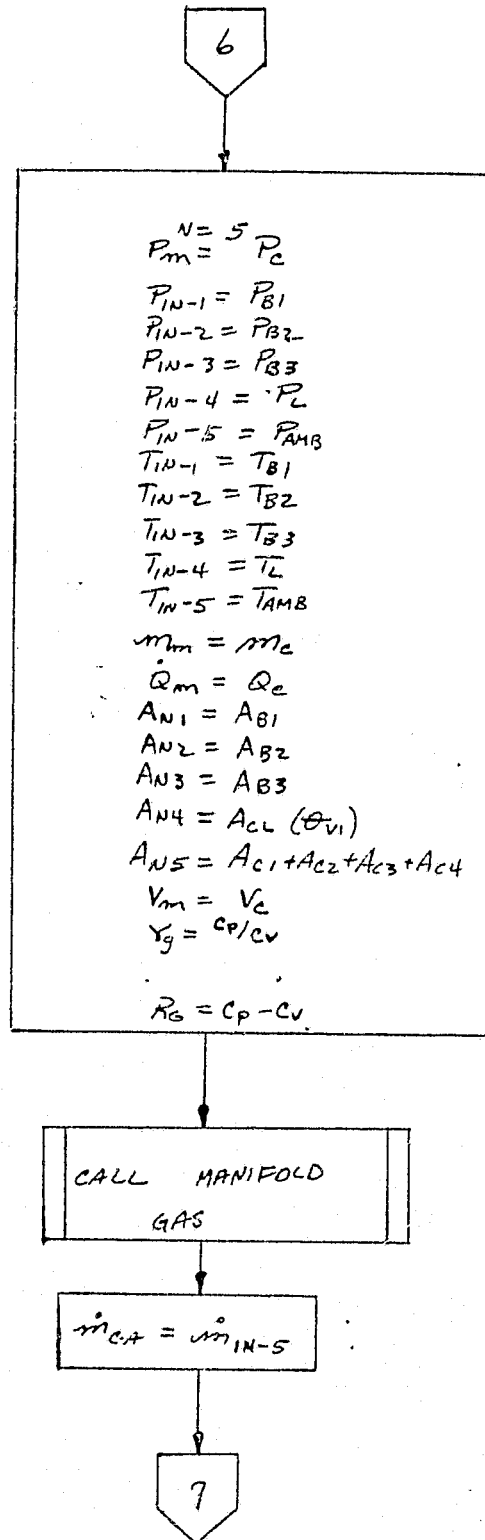 6
N = 5
Pm = Pc
PIN-1 = PB1
PIN-2 = PB2
PIN-3 = PB3
PIN-4 = PL
PIN-5 = PAMB
TIN-1 = TB1
TIN-2 = TB2
TIN-3 = TB3
TIN-4 = TL
TIN-5 = TAMB
mm = mc
Q̇m = Qc
AN1 = AB1
AN2 = AB2
AN3 = AB3
AN4 = ACL (θV1)
AN5 = AC1+AC2+AC3+AC4
Vm = Vc
γg = CP/CV
RG = CP-CV
CALL MANIFOLD
GAS
ṁCA = ṁIN-5
7